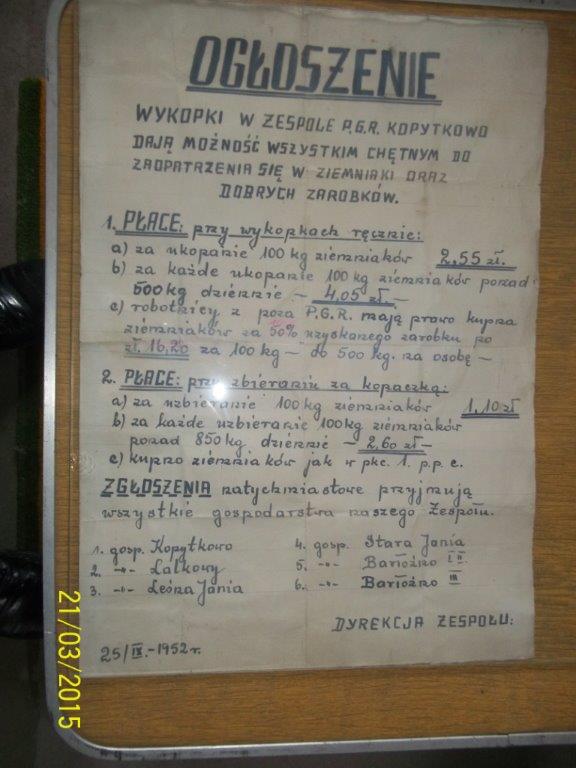 OGŁOSZENIE
WYKOPKI W ZESPOLE P.G.R. KOPYTKOWO
DAJĄ MOŻNOŚĆ WSZYSTKIM CHĘTNYM DO
ZAOPATRZENIA SIĘ W ZIEMNIAKI ORAZ
DOBRYCH ZAROBKÓW.
1. PŁACE: przy wykopkach ręcznie:
a) za ukopanie 100 kg ziemniaków 2,55 zł.
b) za każde ukopanie 100 kg ziemniaków ponad
500 kg dziennie — 4,05 zł —
c) robotnicy z poza P.G.R. mają prawo kupna
ziemniaków za 50% uzyskanego zarobku po
zł. 16,20 za 100 kg — do 500 kg. na osobę —
2. PŁACE: przy zbieraniu za kopaczką:
a) za uzbieranie 100 kg ziemniaków 1,10 zł
b) za każde uzbieranie 100 kg ziemniaków
ponad 850 kg dziennie — 2,60 zł —
c) kupno ziemniaków jak w pkc. 1. p.p. c.
ZGŁOSZENIA natychmiastowe przyjmują
wszystkie gospodarstwa naszego Zespołu.
1. gosp. Kopytkowo 4. gosp. Stara Jania
2. -"- Lalkowy 5. -"- Bartożno I II
3. -"- Leśna Jania 6. -"- Bartożno III
DYREKCJA ZESPOŁU:
25/IX.-1952 r.
21/03/2015